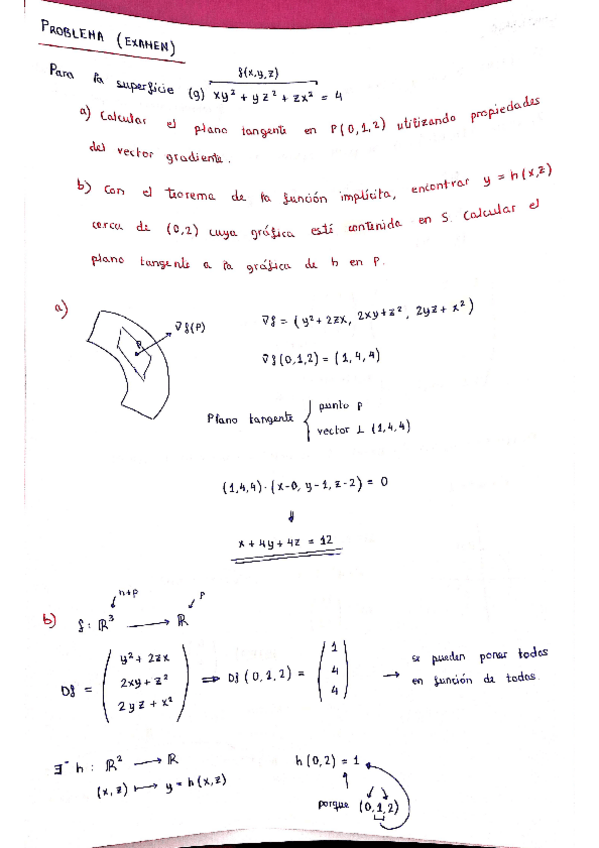 PROBLEMA (EXAMEN)
f(x,y,z)
Para la superficie (g) xy² + yz² + zx² = 4
a) Calcular el plano tangente en P(0,1,2) utilizando propiedades
del vector gradiente.
b) Con el teorema de la función implícita, encontrar y = h(x,z)
cerca de (0,2) cuya gráfica esté contenida en S. Calcular el
plano tangente a la gráfica de h en P.
a)
∇f(P)
P
∇f = (y² + 2zx, 2xy + z², 2yz + x²)
∇f(0,1,2) = (1,4,4)
Plano tangente { punto P
vector ⊥ (1,4,4)
(1,4,4)·(x-0, y-1, z-2) = 0
⇓
x + 4y + 4z = 12
n+p
p
b) f: ℝ³ ⟶ ℝ
Df = ( y² + 2zx
2xy + z²
2yz + x² ) ⇒ Df(0,1,2) = ( 1
4
4 ) → se pueden poner todas
en función de todas.
∃ h: ℝ² ⟶ ℝ
(x,z) ⟼ y = h(x,z)
h(0,2) = 1
porque (0,1,2)